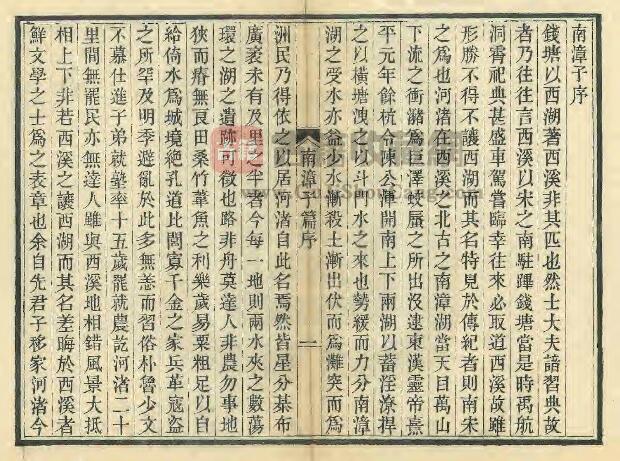 南漳子序
錢塘以西湖著西溪非其匹也然士大夫諳習典故
者乃往往言西溪以宋之南駐蹕錢塘當是時禹航
洞霄祀典甚盛車駕嘗臨幸往來必取道西溪故雖
形勝不得不讓西湖而其名特見於傳紀者則南宋
之為也河渚在西溪之北古之南漳湖當天目萬山
下流之衝瀦為巨澤蛟蜃之所出沒逮東漢靈帝熹
平元年餘杭令陳公渾開南上下兩湖以蓄淫潦捍
之以橫塘洩之以斗門水之來也勢緩而力分南漳
湖之受水亦益少水漸殺土漸出伏而為灘突而為
南漳子篇序
一
洲民乃得依之以居河渚自此名焉然皆星分棊布
廣袤未有及里之半者今每一地則兩水夾之數蕩
環之湖之遺跡可徵也路非舟莫達人非農勿事地
狹而瘠無良田桑竹葦魚之利樂歲易粟粗足以自
給倚水為城境絶孔道比閭寡千金之家兵革寇盜
之所罕及明季避亂於此多無恙而習俗朴魯少文
不慕仕進子弟就塾率十五歲罷就農訖河渚二十
里間無罷民亦無達人雖與西溪地相錯風景大抵
相上下非若西溪之讓西湖而其名差晦於西溪者
鮮文學之士為之表章也余自先君子移家河渚今